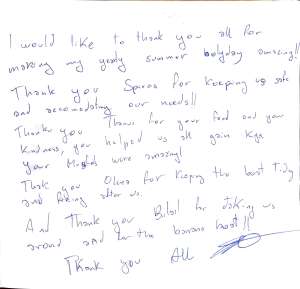 I would like to thank you all for
making my yearly summer holyday amazing!!
Thank you Spiros for keeping us safe
and accomodating our needs!!
Thank you for your food and your
kindness, you helped us all gain kgs
your were amazing!
Thank you for keeping the boat tidy
and after us.
And Thank you Bilal for taking us
around and for the banana boat!!
Thank you All